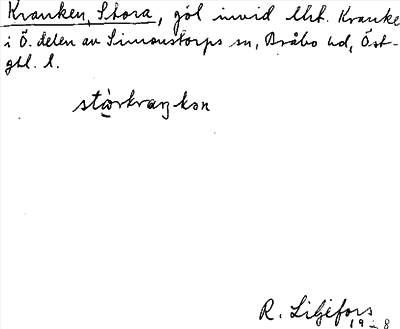 Kranken, Stora, göl invid lht. Kranke
i Ö. delen av Simonstorps sn, Bråbo hd, Öst-
gtl. l.
R. Liljefors